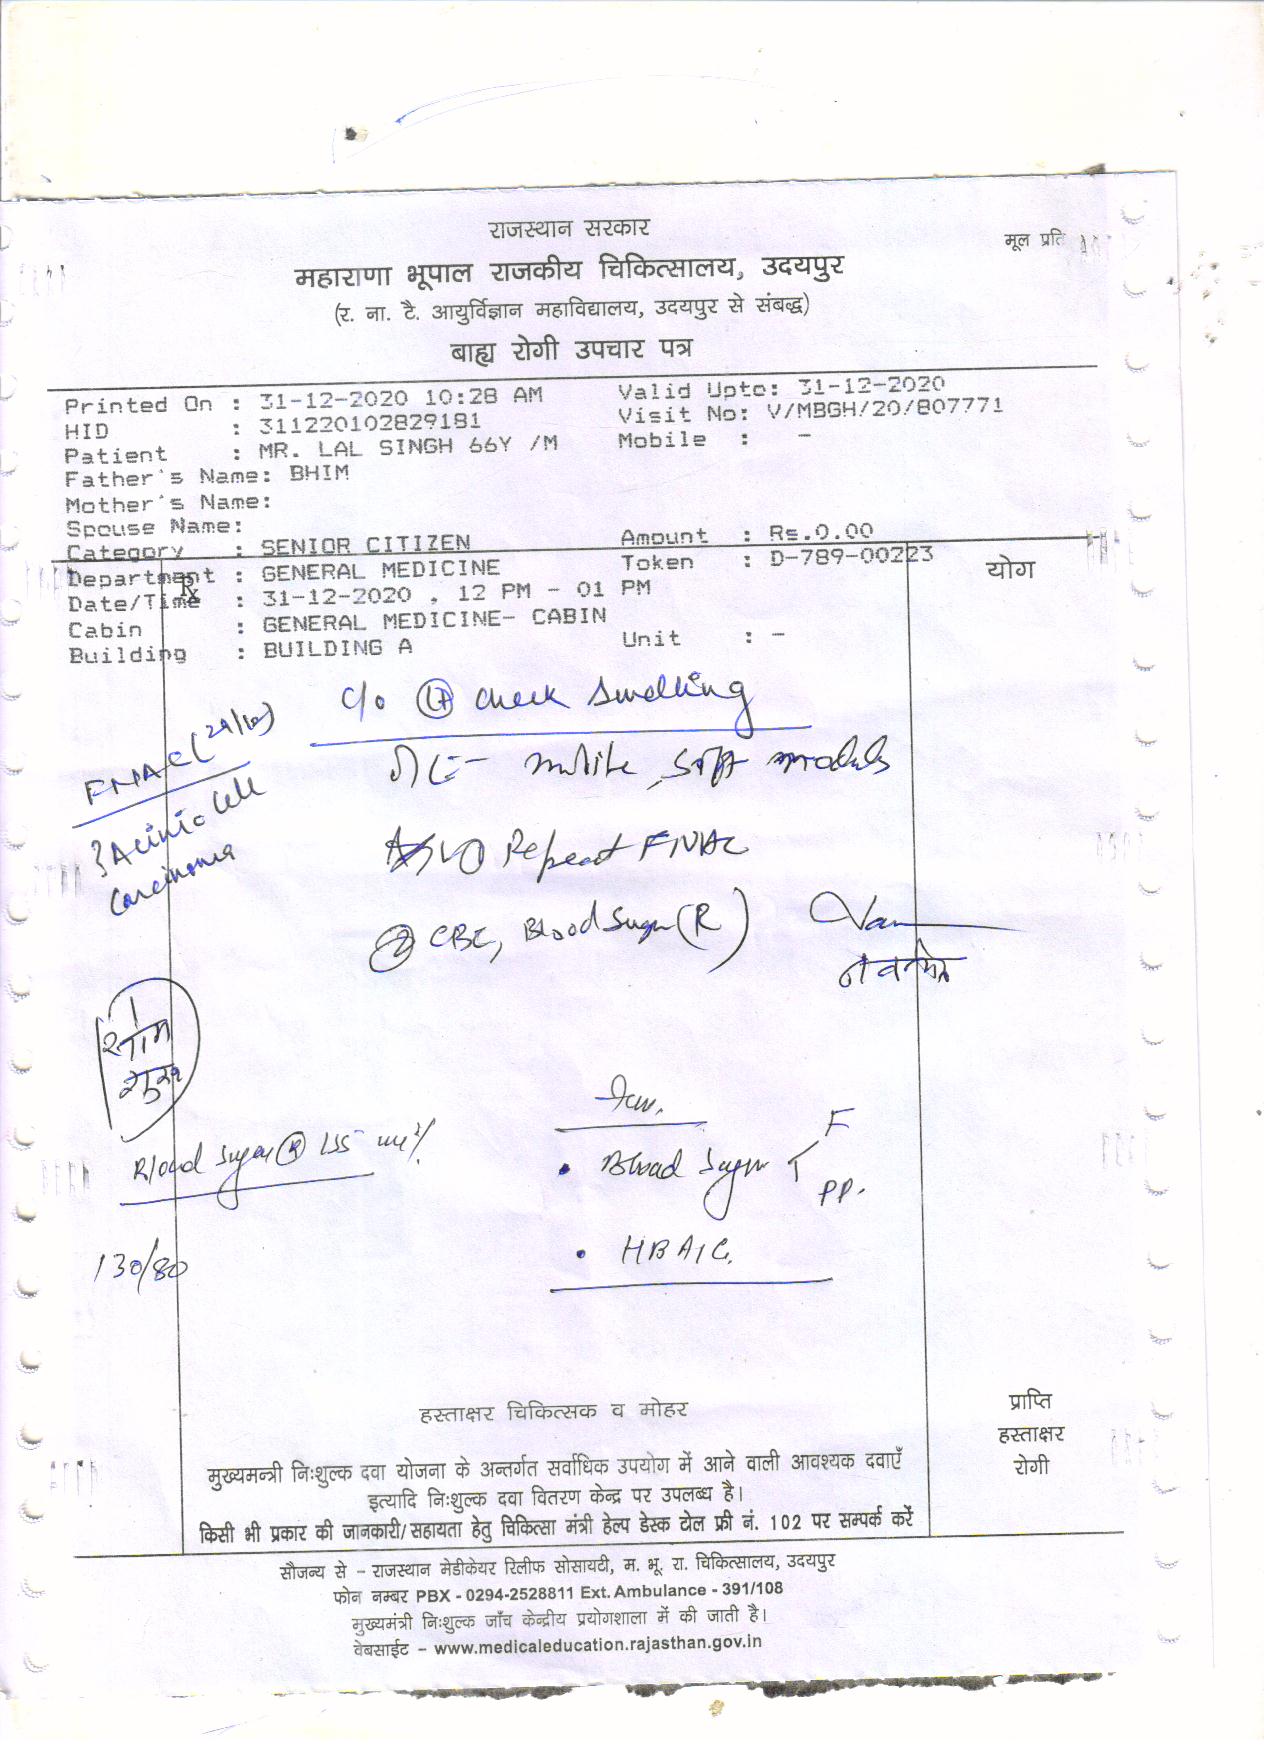 राजस्थान सरकार
मूल प्रति
महाराणा भूपाल राजकीय चिकित्सालय, उदयपुर
(र. ना. टै. आयुर्विज्ञान महाविद्यालय, उदयपुर से संबद्ध)
बाह्य रोगी उपचार पत्र
Printed On : 31-12-2020 10:28 AM Valid Upto: 31-12-2020
HID : 311220102829181 Visit No: V/MBGH/20/807771
Patient : MR. LAL SINGH 66Y /M Mobile : -
Father's Name: BHIM
Mother's Name:
Spouse Name:
Category : SENIOR CITIZEN Amount : Rs.0.00
Department : GENERAL MEDICINE Token : D-789-00223
योग
Rx
Date/Time : 31-12-2020 , 12 PM - 01 PM
Cabin : GENERAL MEDICINE- CABIN
Building : BUILDING A Unit : -
c/o Lt cheek swelling
FNAC (29/12)
soft
? Acinic Cell
Carcinoma
Repeat FNAC
② CBC, Blood Sugar (R)
Blood Sugar (R) 155
Inv.
• Blood Sugar F
PP.
• HBA1C.
130/80
हस्ताक्षर चिकित्सक व मोहर
प्राप्ति
हस्ताक्षर
रोगी
मुख्यमन्त्री निःशुल्क दवा योजना के अन्तर्गत सर्वाधिक उपयोग में आने वाली आवश्यक दवाएँ
इत्यादि निःशुल्क दवा वितरण केन्द्र पर उपलब्ध है।
किसी भी प्रकार की जानकारी/सहायता हेतु चिकित्सा मंत्री हेल्प डेस्क टोल फ्री नं. 102 पर सम्पर्क करें
सौजन्य से – राजस्थान मेडीकेयर रिलीफ सोसायटी, म. भू. रा. चिकित्सालय, उदयपुर
फोन नम्बर PBX - 0294-2528811 Ext. Ambulance - 391/108
मुख्यमंत्री निःशुल्क जाँच केन्द्रीय प्रयोगशाला में की जाती है।
वेबसाईट – www.medicaleducation.rajasthan.gov.in